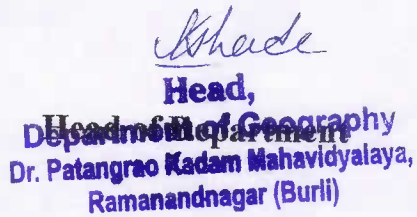 Head,
Head of Department
Department of Geography
Dr. Patangrao Kadam Mahavidyalaya,
Ramanandnagar (Burli)